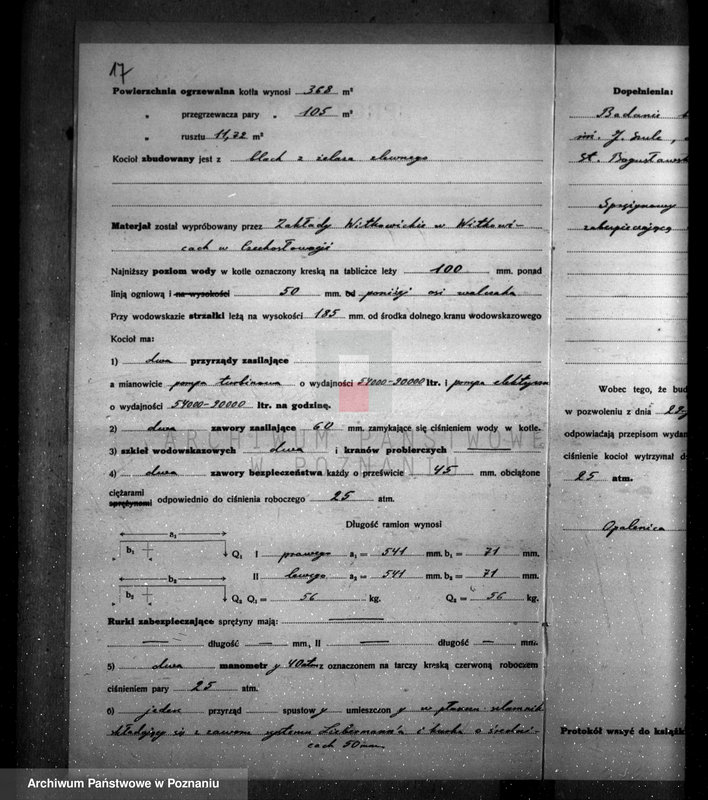 17
Powierzchnia ogrzewalna kotła wynosi 368 m²
„ przegrzewacza pary „ 105 m²
„ rusztu 11,72 m²
Kocioł zbudowany jest z blach z żelaza zlewnego
Materjał został wypróbowany przez Zakłady Witkowickie w Witkowi-
cach w Czechosłowacji
Najniższy poziom wody w kotle oznaczony kreską na tabliczce leży 100 mm. ponad
linją ogniową i na wysokości 50 mm. od poniżej osi walczaka
Przy wodowskazie strzałki leżą na wysokości 185 mm. od środka dolnego kranu wodowskazowego
Kocioł ma:
1) dwa przyrządy zasilające
a mianowicie pompa turbinowa o wydajności 54000-90000 ltr. i pompa elektryczna
o wydajności 54000-90000 ltr. na godzinę.
2) dwa zawory zasilające 60 mm. zamykające się ciśnieniem wody w kotle.
3) szkieł wodowskazowych dwa i kranów probierczych —
4) dwa zawory bezpieczeństwa każdy o prześwicie 45 mm. obciążone
ciężarami
sprężynomi odpowiednio do ciśnienia roboczego 25 atm.
Długość ramion wynosi
a₁
b₁ Q₁ I prawego a₁ = 541 mm. b₁ = 71 mm.
b₂ II lewego a₂ = 541 mm. b₂ = 71 mm.
b₂ Q₂ Q₁ = 56 kg. Q₂ = 56 kg.
Rurki zabezpieczające sprężyny mają: —
— długość — mm, II — długość — mm.
5) dwa manometry 40 atm z oznaczonem na tarczy kreską czerwoną roboczem
ciśnieniem pary 25 atm.
6) jeden przyrząd spustowy umieszczony w płaszczu
składający się z zaworu systemu Liebermann'a i kurka o średni-
cach 50 mm.
Dopełnienia:
Badanie
inż. J. Szulc,
St. Bogusławsk
Sprężynowy
zabezpieczającą
Wobec tego, że bud
w pozwoleniu z dnia 22
odpowiadają przepisom wydan
ciśnienie kocioł wytrzymał d
25 atm.
Opalenica
Protokół wszyć do książk
ARCHIWUM PAŃSTWOWE
W POZNANIU
Archiwum Państwowe w Poznaniu